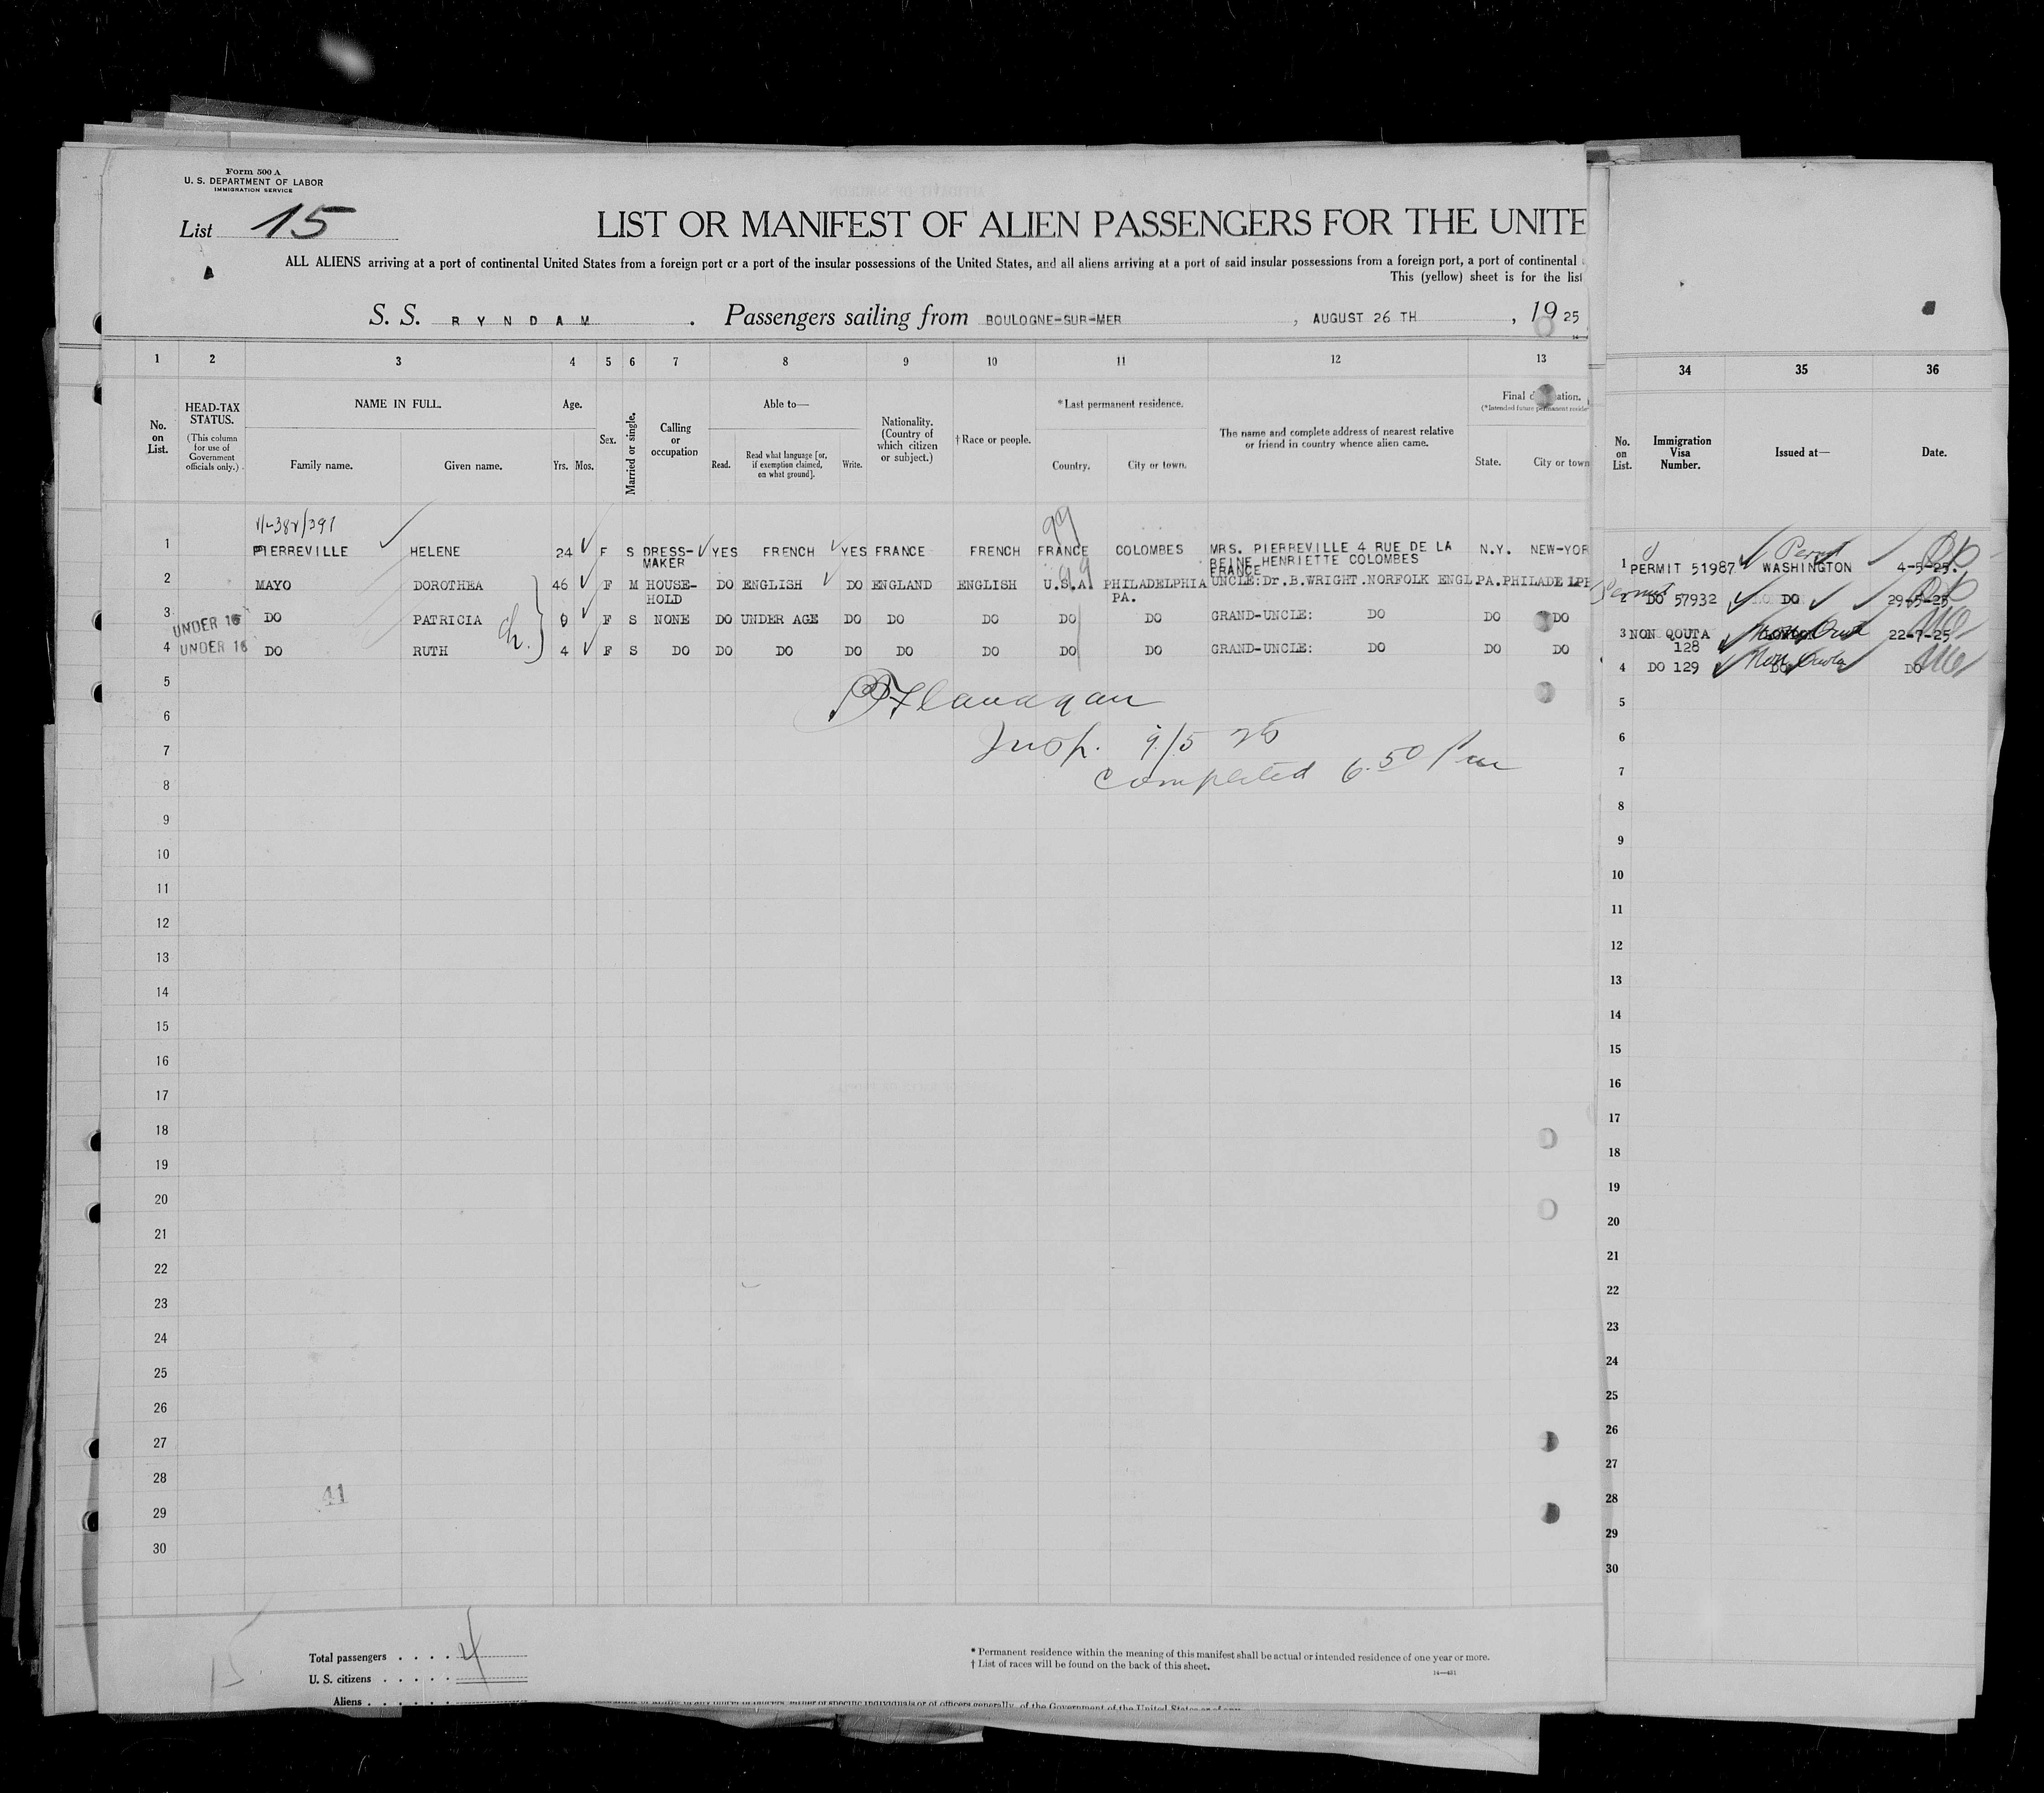 Form 500 A
U. S. DEPARTMENT OF LABOR
IMMIGRATION SERVICE
List 15
LIST OR MANIFEST OF ALIEN PASSENGERS FOR THE UNITE
ALL ALIENS arriving at a port of continental United States from a foreign port or a port of the insular possessions of the United States, and all aliens arriving at a port of said insular possessions from a foreign port, a port of continental
This (yellow) sheet is for the list
S. S. RYNDAM. Passengers sailing from BOULOGNE-SUR-MER, AUGUST 26 TH, 1925
1 2 3 4 5 6 7 8 9 10 11 12 13 34 35 36
No. on List.
HEAD-TAX STATUS.
(This column for use of Government officials only.)
NAME IN FULL.
Family name. Given name.
Age.
Yrs. Mos.
Sex.
Married or single.
Calling or occupation
Able to—
Read. Read what language [or, if exemption claimed, on what ground]. Write.
Nationality. (Country of which citizen or subject.)
† Race or people.
*Last permanent residence.
Country. City or town.
The name and complete address of nearest relative or friend in country whence alien came.
Final
(*Intended future permanent
State. City or town
No. on List.
Immigration Visa Number.
Issued at—
Date.
99
1 PIERREVILLE HELENE 24 F S DRESS-MAKER YES FRENCH YES FRANCE FRENCH FRANCE COLOMBES MRS. PIERREVILLE 4 RUE DE LA REINE HENRIETTE COLOMBES FRANCE N.Y. NEW-YOR 1 PERMIT 51987 WASHINGTON 4-5-25.
2 MAYO DOROTHEA 46 F M HOUSE-HOLD DO ENGLISH DO ENGLAND ENGLISH U.S.A. PHILADELPHIA PA. UNCLE:Dr.B.WRIGHT.NORFOLK ENGL. PA. PHILADELPH 2 DO 57932 DO 29-5-25
UNDER 16 3 DO PATRICIA 9 F S NONE DO UNDER AGE DO DO DO DO DO GRAND-UNCLE: DO DO DO 3 NON QOUTA 128 22-7-25
UNDER 16 4 DO RUTH 4 F S DO DO DO DO DO DO DO DO GRAND-UNCLE: DO DO DO 4 DO 129 DO DO
ch.
5 5
6 6
7 7
8 8
9 9
10 10
11 11
12 12
13 13
14 14
15 15
16 16
17 17
18 18
19 19
20 20
21 21
22 22
23 23
24 24
25 25
26 26
27 27
28 28
29 29
30 30
Flanagan
Insp. 9/5 25
Completed 6.50 Pm
41
15
Total passengers . . . . 4
U. S. citizens . . . . .
Aliens . . . . . .
* Permanent residence within the meaning of this manifest shall be actual or intended residence of one year or more.
† List of races will be found on the back of this sheet.
14—481